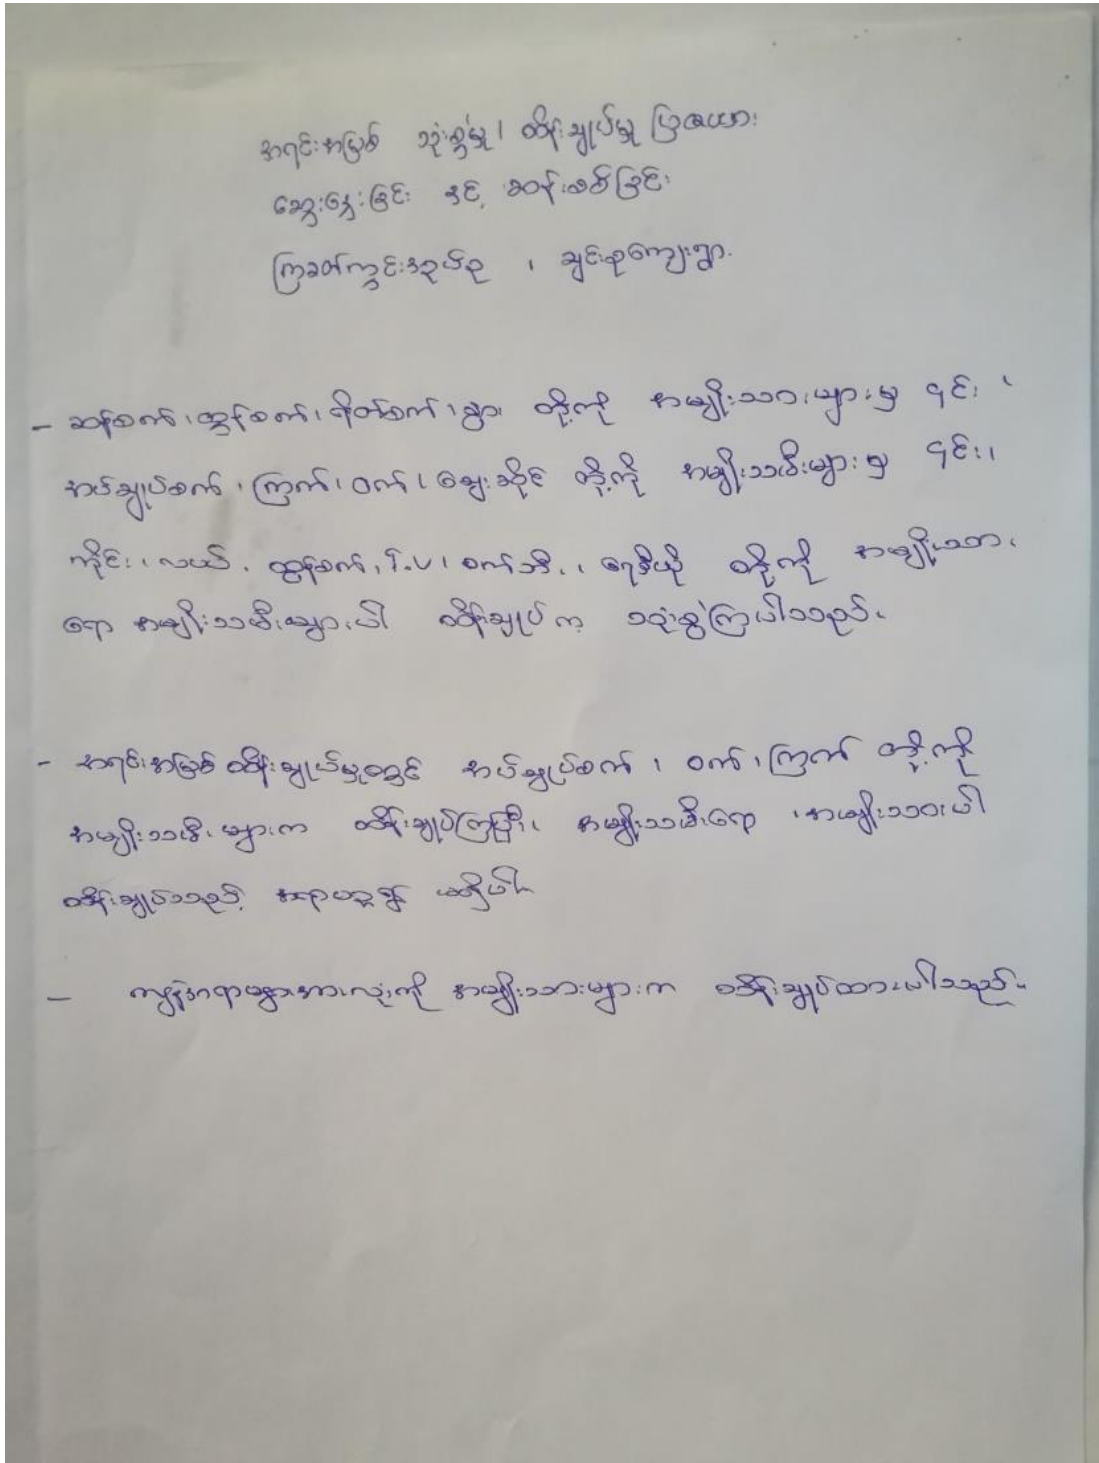 အရင်းအမြစ် သုံးစွဲမှု၊ ထိန်းချုပ်မှု ပြဇယား
ဆွေးနွေးခြင်း နှင့် ဆန်းစစ်ခြင်း
ကြခတ်ကွင်းဒေုပ်စု ၊ ချင်းစုကျေးရွာ.
- ဆန်စက်၊ ထွန်စက်၊ ရိတ်စက်၊ နွား တို့ကို အမျိုးသားများမှ ၎င်း ၊
အပ်ချုပ်စက် ၊ ကြက်၊ ဝက်၊ ဈေးဆိုင် တို့ကို အမျိုးသမီးများမှ ၎င်း၊
ကိုင်း ၊ လယ် ၊ ထွန်စက်၊ T.V ၊ စက်ဘီး ၊ ရေဒီယို တို့ကို အမျိုးသား
ရော အမျိုးသမီးများပါ ထိန်းချုပ် က သုံးစွဲကြပါသည်။
- အရင်းအမြစ် ထိန်းချုပ်မှုတွင် အပ်ချုပ်စက် ၊ ဝက်၊ ကြက် တို့ကို
အမျိုးသမီးများက ထိန်းချုပ်ကြပြီး၊ အမျိုးသမီးရော ၊ အမျိုးသားပါ
ထိန်းချုပ်သည့် အရာပစ္စည်း မရှိပါ။
- ကျန်အရာများအားလုံးကို အမျိုးသားများက ထိန်းချုပ်ထားပါသည်။